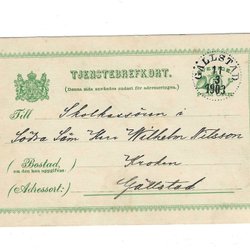 TJENSTEBREFKORT.
(Denna sida användes endast för adresseringen.)
GÄLLSTAD
11
3
1903
Till Skolkassören i
Södra Säm Herr Wilhelm Nilsson
(Bostad, om den kan uppgifvas:) Kroken
(Adressort:) Gällstad